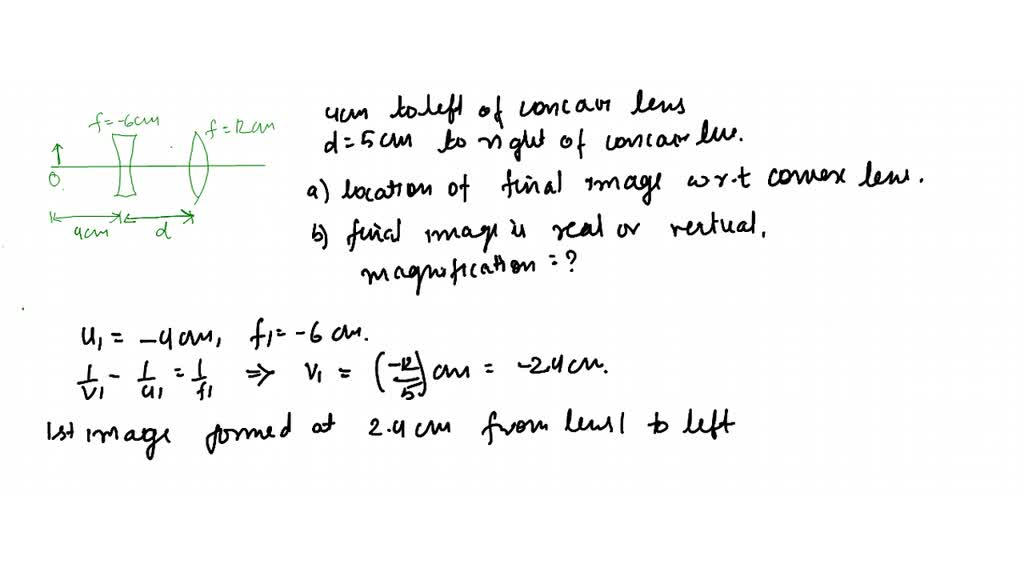 f=-6cm
f=12cm
O
4cm
d
4cm to left of concave lens
d=5cm to right of concave len.
a) location of final image w.r.t convex lens.
b) final image is real or vertual,
magnification=?
u₁ = -4cm, f₁=-6 cm.
1/v₁ - 1/u₁ = 1/f₁ ⇒ v₁ = (-12/5) cm = -2.4cm.
1st image formed at 2.4cm from lens1 to left